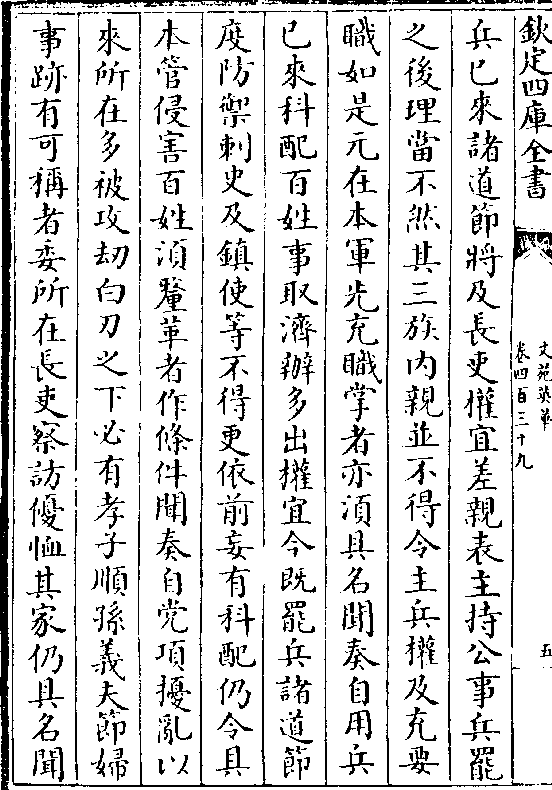 欽定四庫全書
文苑英華
卷四百三十九
五
兵已來諸道節將及長吏權宜差親表主持公事兵罷
之後理當不然其三族内親並不得令主兵權及充要
職如是元在本軍先充職掌者亦湏具名聞奏自用兵
已來科配百姓事取濟辦多出權宜今既罷兵諸道節
度防禦刺史及鎮使等不得更依前妄有科配仍令具
本管侵害百姓湏釐革者作條件聞奏自党項擾亂以
來所在多被攻刼白刃之下必有孝子順孫義夫節婦
事跡有可稱者委所在長吏察訪優恤其家仍具名聞